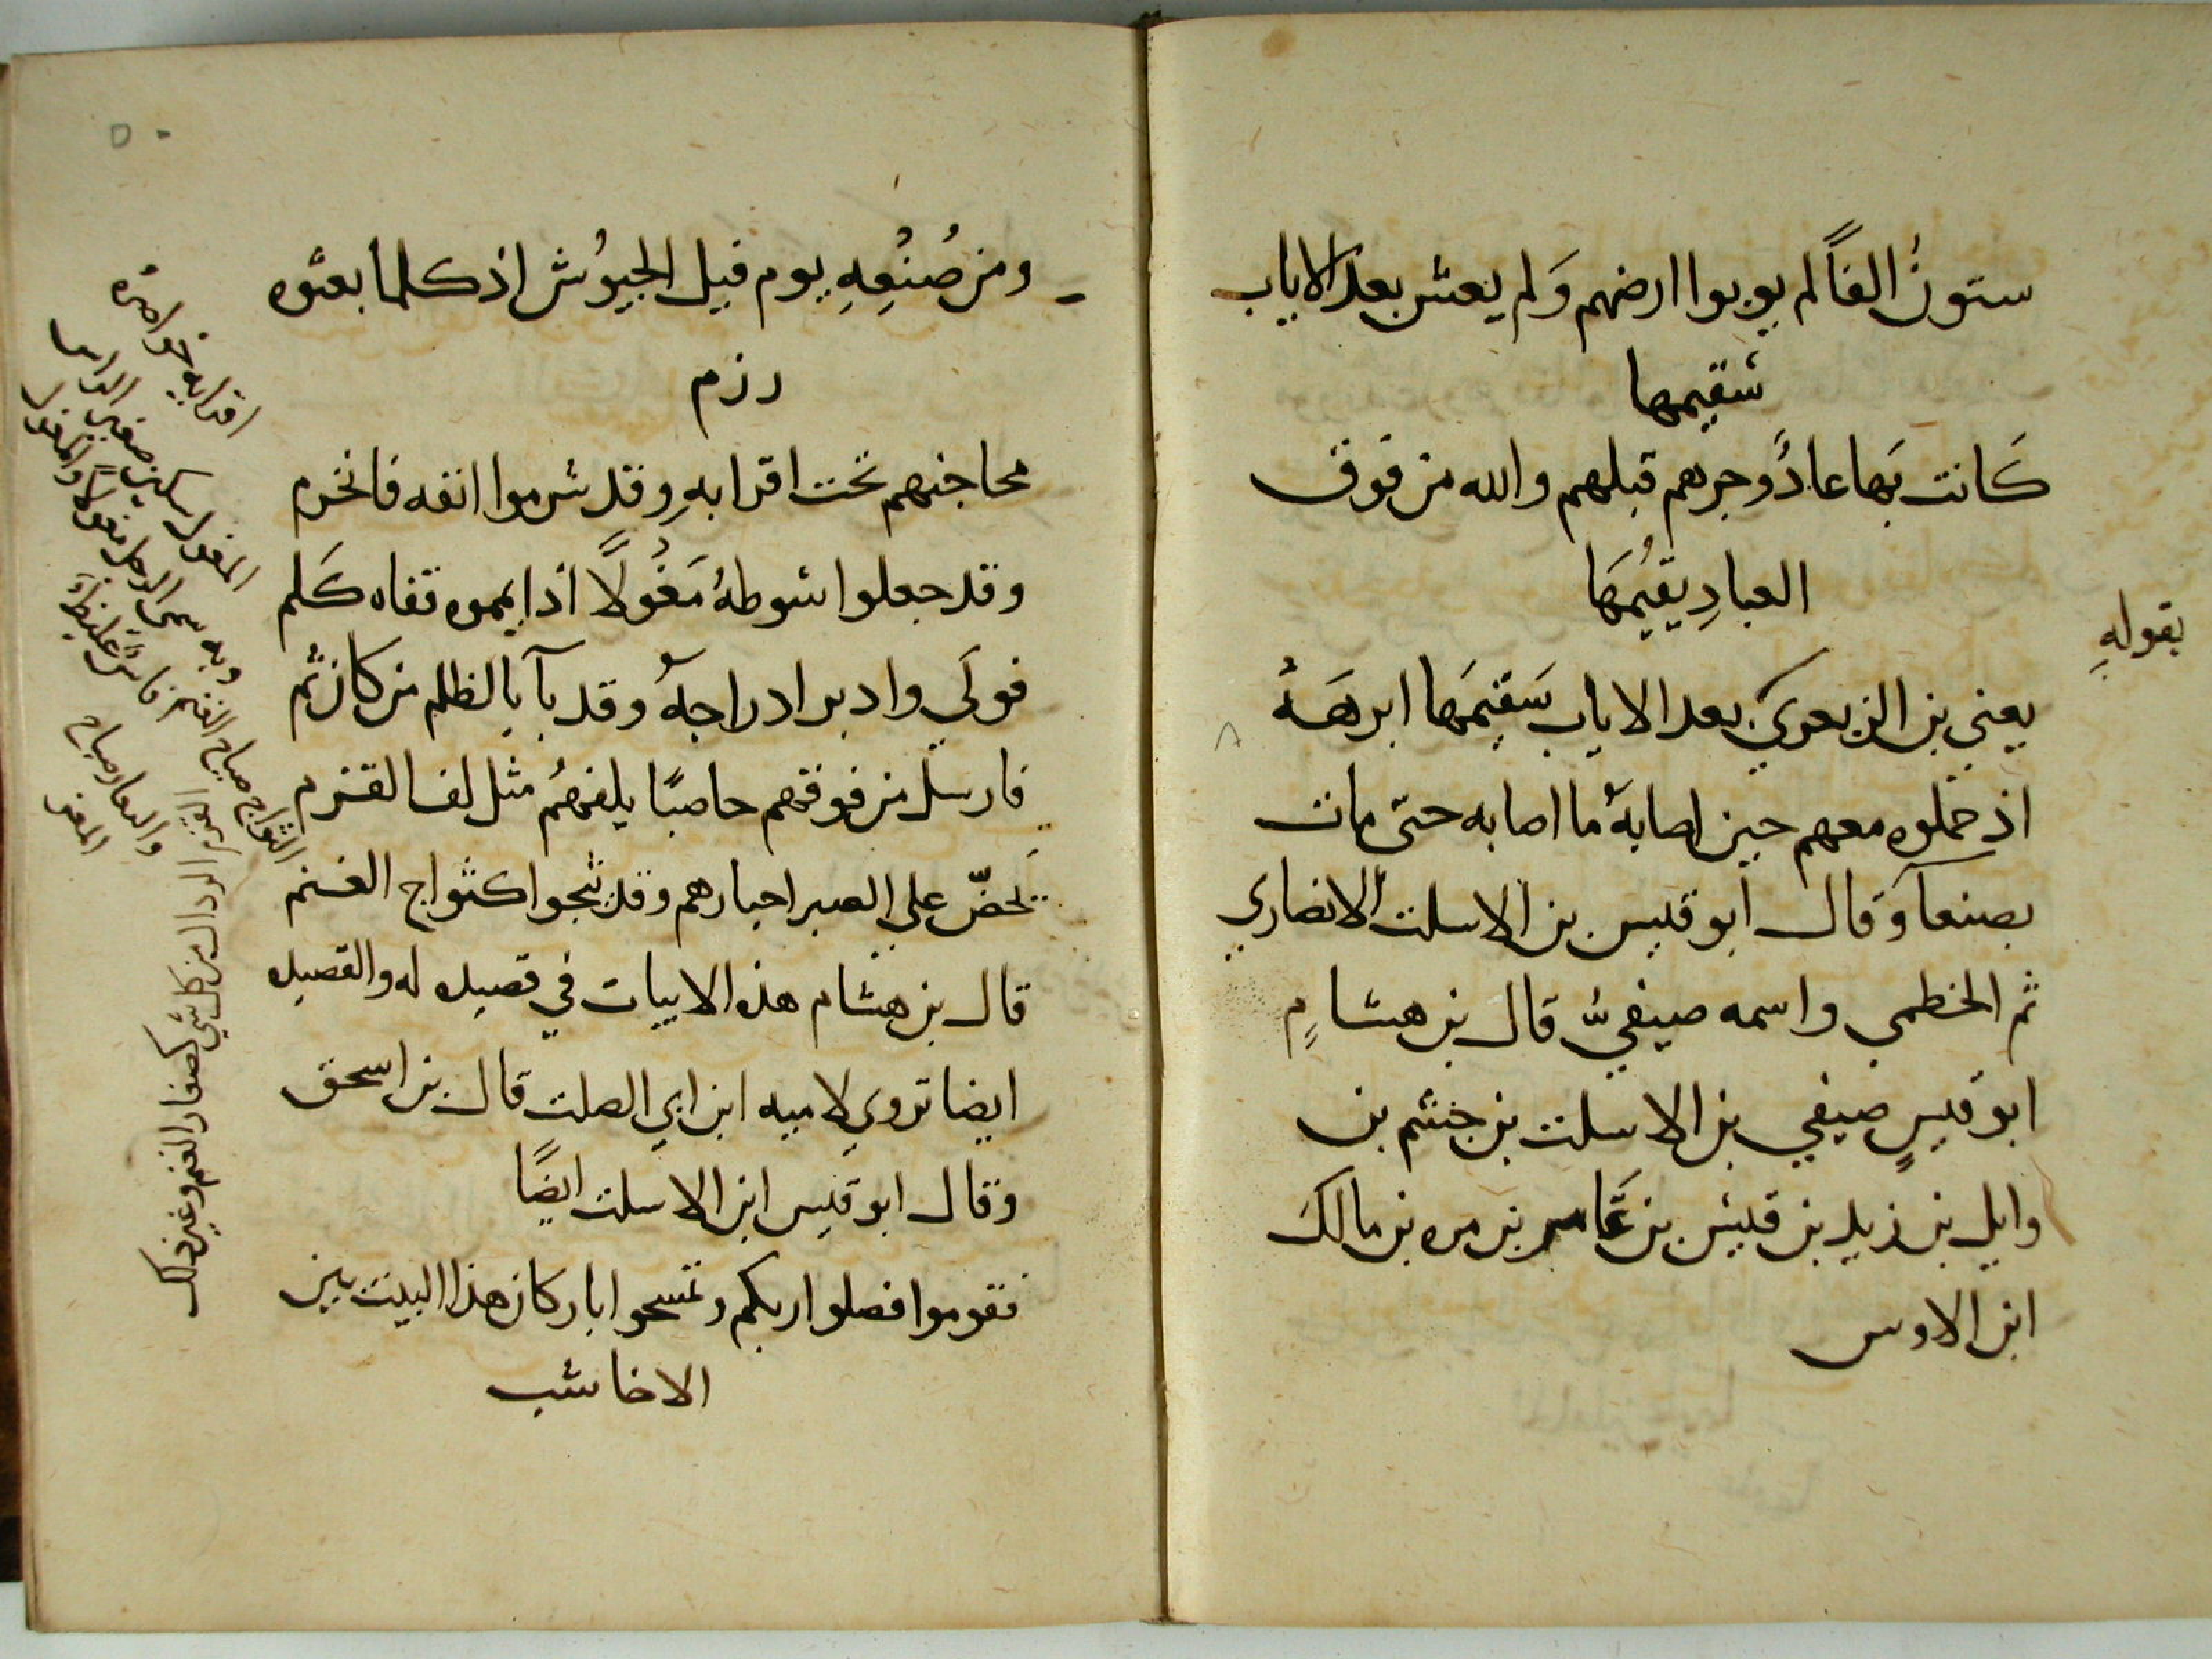 ستونُ الفاً لم يوبوا ارضهم وَلم يعش بعد الاياب
سقيمها
كَانت بَها عادٌ وجرهم قبلهم والله من فوق
العبادِ يقيُمهَا
بقولهِ
يعني بن الزبعرى بعد الاياب سَقيمَها ابرهَهُ
اذ حملوه معهم حين اصابهُ ما اصابه حتى مات
بصنعآ وَقال ابو قيس بن الاسلت الانصاري
ثم الخطمي واسمه صيفيٌّ قال بن هشامٍ
ابو قيسٍ صيفي بن الاسلت بن جشم بن
وايل بن زيد بن قيس بن عَامر بن مره بن مالك
ابن الاوس
ومن صُنْعِهِ يوم فيل الحبُوش اذ كلما بعثوه
رزم
محاجنهم تحت اقرابهِ وقد شرموا انفه فانخرم
وقد جعلوا سوطهُ مَغُولًا اذا يمموه قفاه كَلم
فولَي وادبر ادراجهُ وقد بآ بالظلم من كان ثم
فارسل من فوقهم حاصبًا يلفهُم مثل لف القزم
تحضّ على الصبر احبارهم وقد ثجوا كثواج الغنم
قال بن هشام هذه الابيات في قصيده له والقصيده
ايضا تروي لاميه ابن ابي الصلت قال بن اسحق
وقال ابو قيس ابن الاسلت ايضًا
فقوموا فصلوا ربكم وتمسحوا باركان هذا البيت بين
الاخاشب
اقرابه خواصره
المغول سكين صغير
وبه سمى الرجل مغولاً والمغول
فاسٌ غليظٌ
الثواج صياح الغنم
واليعار صياح
المعز
الردال من كل شي كصغار الغنم وغير ذلك
٥٠